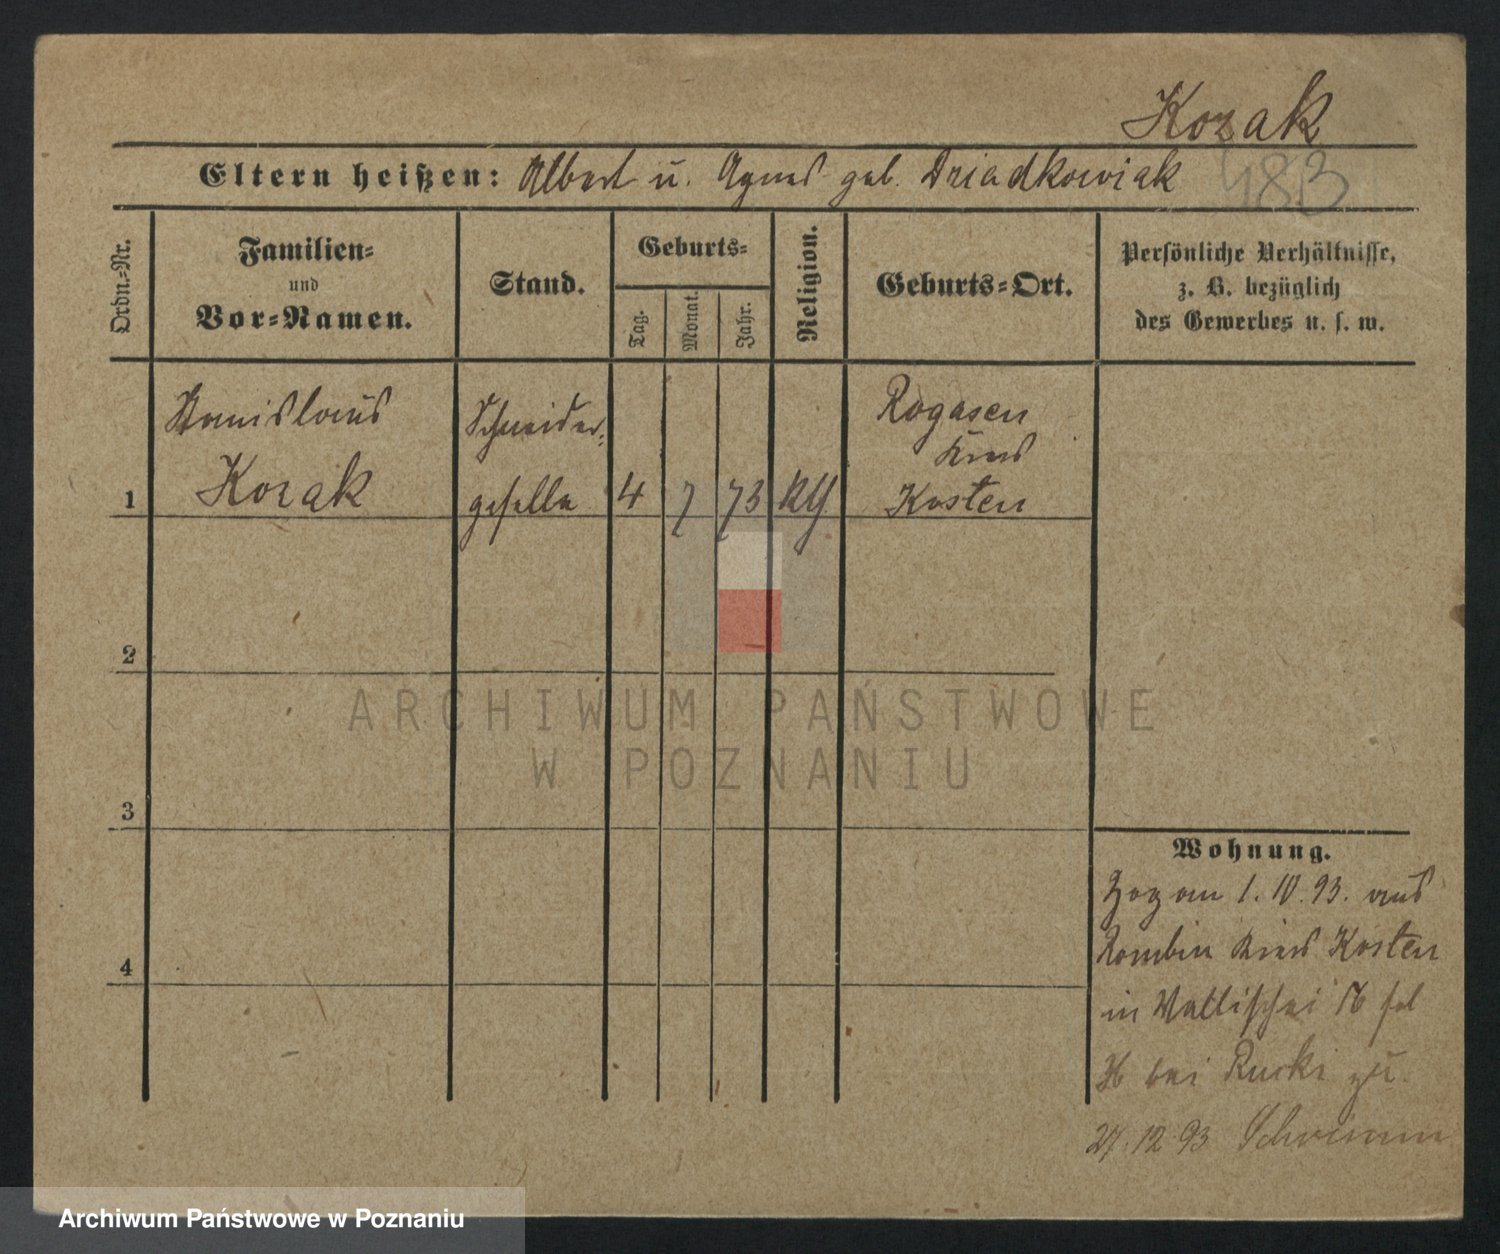 Kozak
Eltern heißen: Albert u. Agnes geb. Dziadkowiak
483
Ordn.-Nr.
Familien-
und
Vor-Namen.
Stand.
Geburts-
Tag.
Monat.
Jahr.
Religion.
Geburts-Ort.
Persönliche Verhältnisse,
z. B. bezüglich
des Gewerbes u. s. w.
Stanislaus
Kozak
Schneider-
geselle
1
4
7
73
Rogasen
Kreis
Kosten
2
3
4
ARCHIWUM PAŃSTWOWE
W POZNANIU
Wohnung.
Zog am 1. 10. 93. aus
Rombin Kreis Kosten
in Wallischei
bei Rucki zu.
27. 12. 93
Archiwum Państwowe w Poznaniu